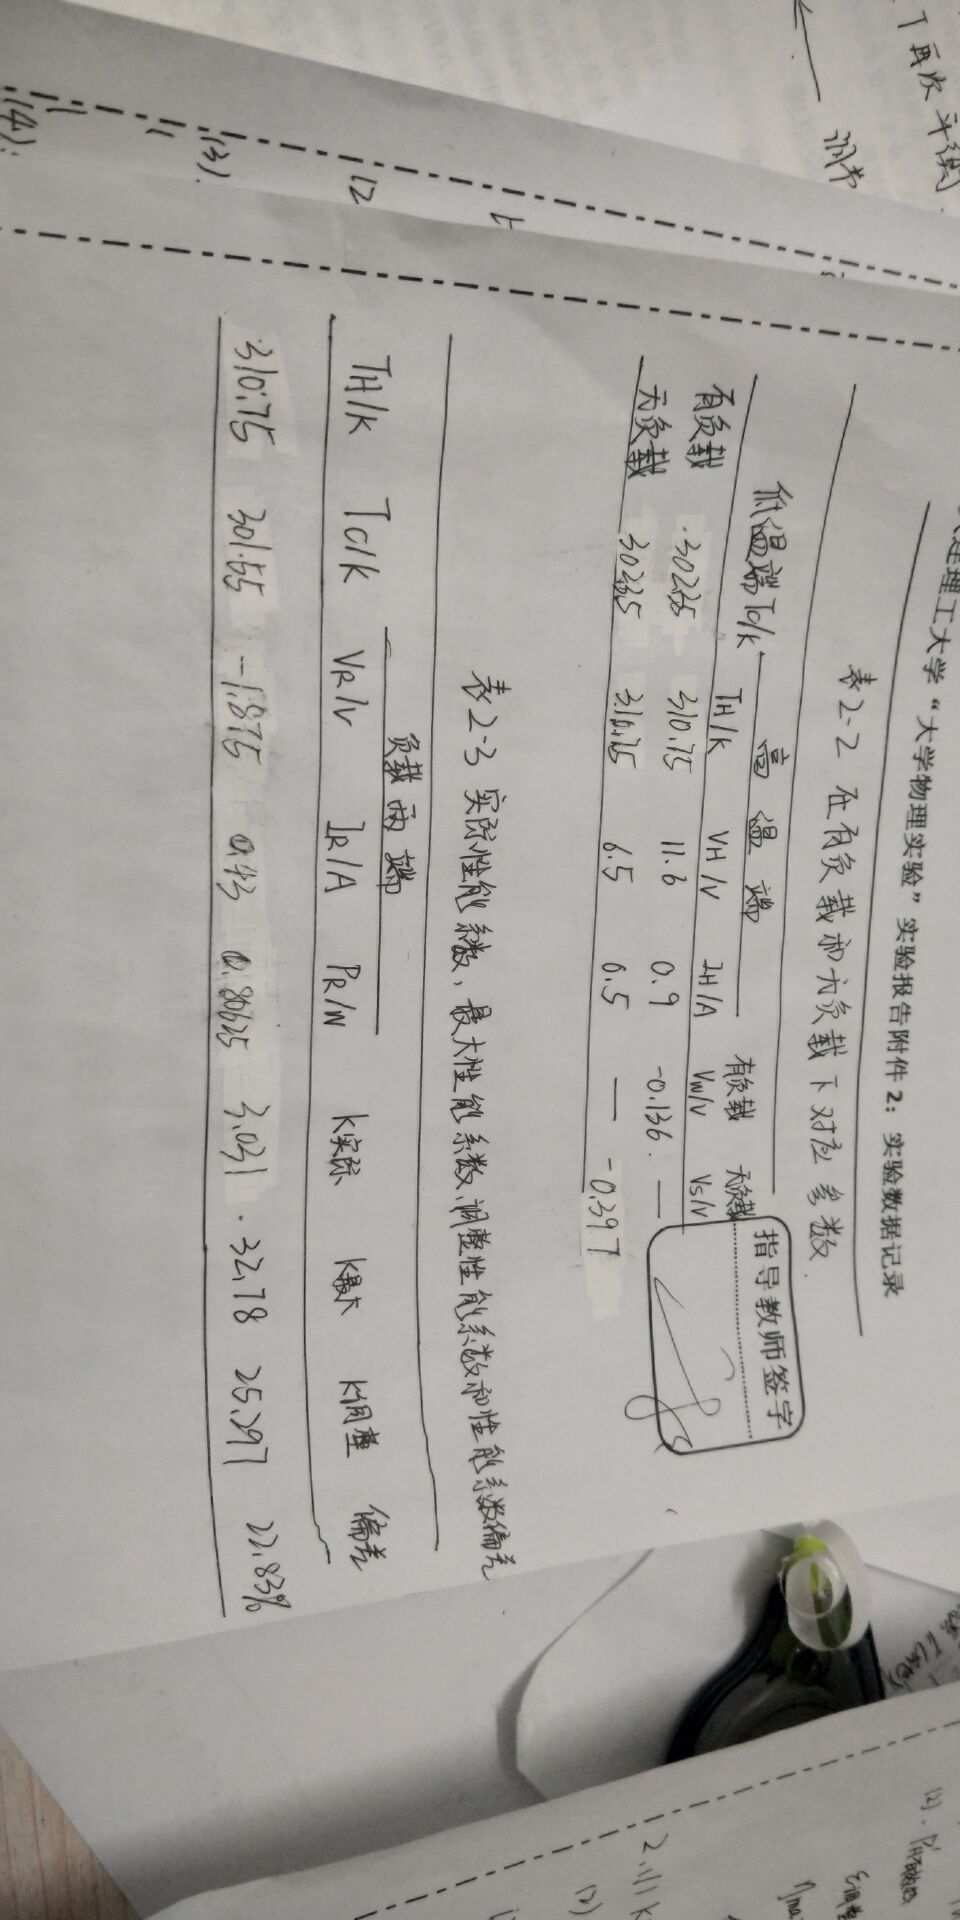 T再次平衡
调节
大连理工大学“大学物理实验”实验报告附件2：实验数据记录
表2-2 在有负载和无负载下对应参数.
指导教师签字
低温端Tc/K 高温端 有负载 无负载
TH/K VH/V IH/A Vw/V Vs/V
有负载 302.35 310.75 11.6 0.9 -0.136 —
无负载 302.35 310.75 6.5 0.5 — -0.397
表2-3 实际性能系数、最大性能系数、调整性能系数和性能系数偏差
负载两端
TH/K TC/K VR/V IR/A PR/W K实际 K最大 K调整 偏差
310.75 301.55 -1.875 0.43 0.80625 3.031 32.78 25.297 22.83%
12
(3).
(4):
(2).
2.11 K
(2)